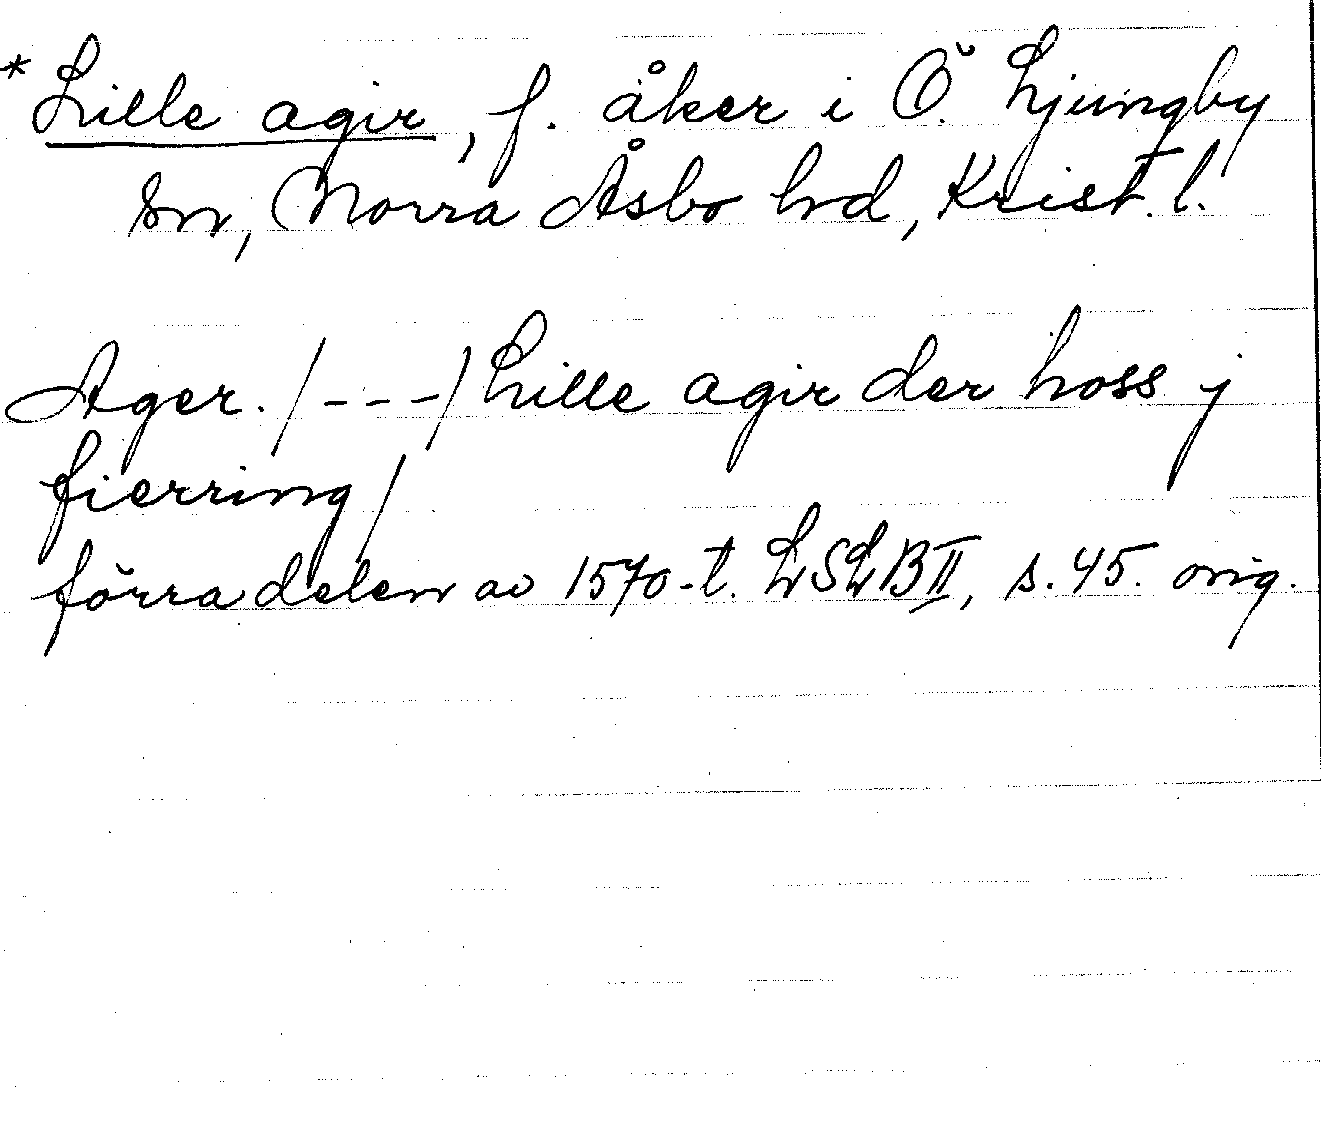 *Lille agir, f. åker i Ö. Ljungby
sn, Norra Åsbo hd, Krist. l.
Ager. /---/ Lille agir der hoss j
fierring/
förra delen av 1570-t. LSLB II, s. 45. orig.